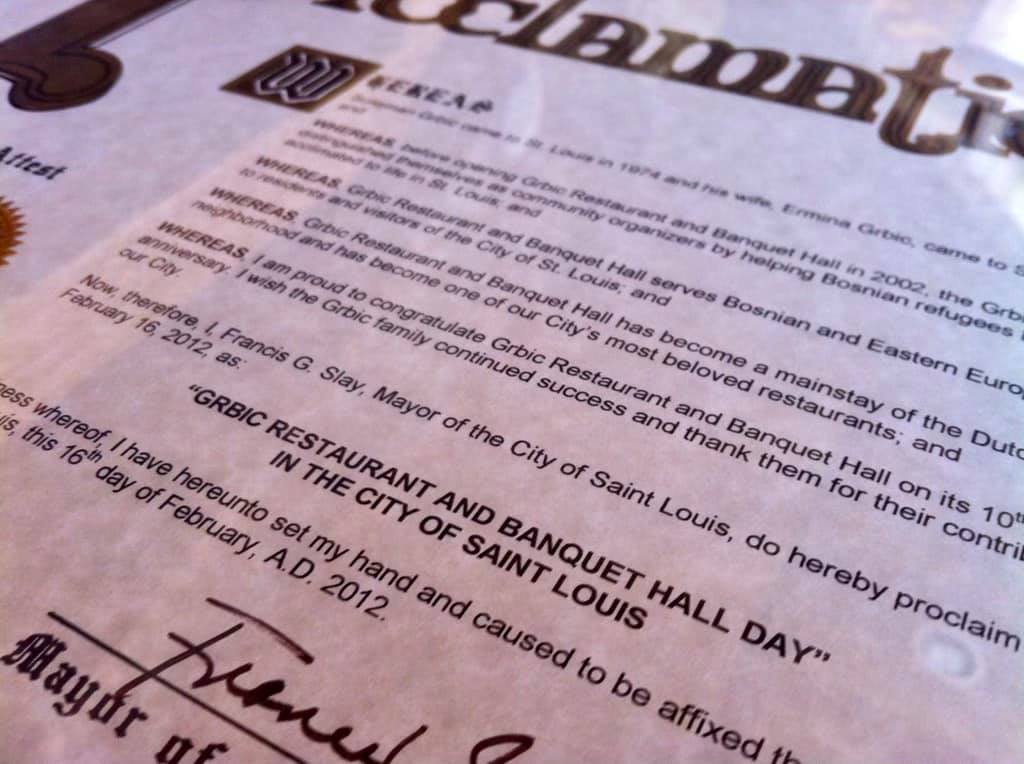 Proclamatio
Attest
WHEREAS
Sulejman Grbic came to St. Louis in 1974 and his wife, Ermina Grbic, came to S
and
WHEREAS, before opening Grbic Restaurant and Banquet Hall in 2002, the Grbic
distinguished themselves as community organizers by helping Bosnian refugees
acclimated to life in St. Louis; and
WHEREAS, Grbic Restaurant and Banquet Hall serves Bosnian and Eastern Euro
to residents and visitors of the City of St. Louis; and
WHEREAS, Grbic Restaurant and Banquet Hall has become a mainstay of the Dutc
neighborhood and has become one of our City's most beloved restaurants; and
WHEREAS, I am proud to congratulate Grbic Restaurant and Banquet Hall on its 10th
anniversary. I wish the Grbic family continued success and thank them for their contrib
our City.
Now, therefore, I, Francis G. Slay, Mayor of the City of Saint Louis, do hereby proclaim
February 16, 2012, as:
"GRBIC RESTAURANT AND BANQUET HALL DAY"
IN THE CITY OF SAINT LOUIS
ness whereof, I have hereunto set my hand and caused to be affixed th
uis, this 16th day of February, A.D. 2012.
Francis
Mayor of